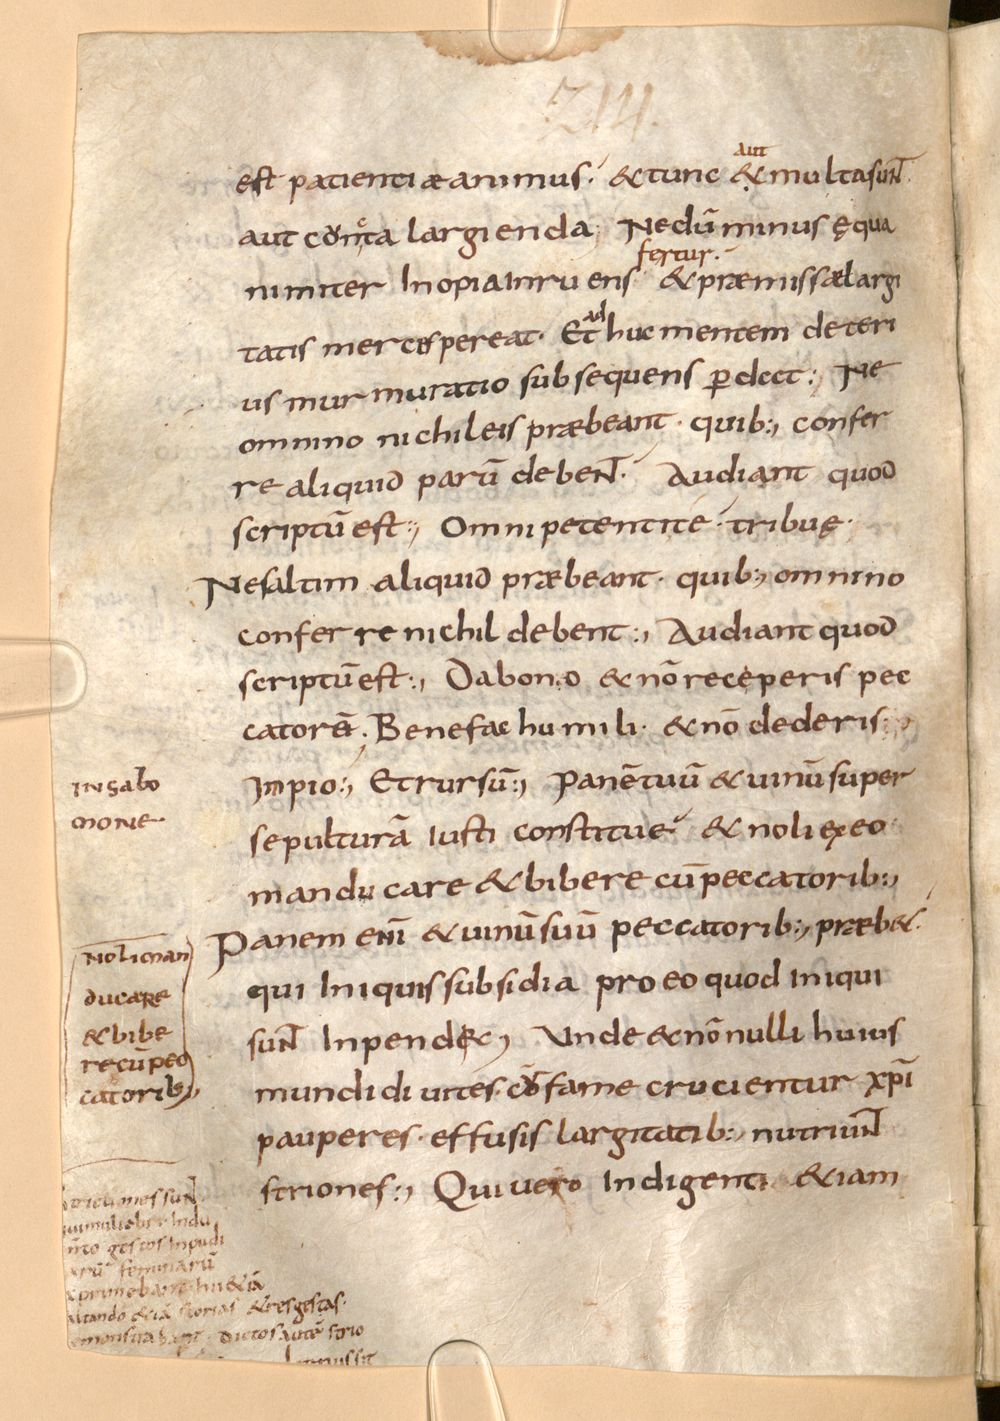 214.
aut
est patientiæ animus. & tunc & multa sunt
aut concta largienda; Ne dū minus ęqua
fertur.
nimiter Inopia inruens & præmissæ largi
ad
tatis merces pereat. Et huc mentem deteri
us murmuratio subsequens perdcct:; Ne
omnino nichil eis præbeant. quib:, confer
re aliquid parū debent. Audiant quod
scriptū est:, Omni petenti te tribuę.
Ne saltim aliquid præbeant. quib:, omnino
conferre nichil debent:, Audiant quod
scriptū est:, Da bono & nō receperis pec
catorē. Benefac humili. & nō dederis:,
Impio:, Et rursū:, Panē tuū & uinū super
sepulturā iusti constitue & noli ex eo
manducare & bibere cū peccatorib:,
Panem enī & uinū suū peccatorib:, præb&.
qui Iniquis subsidia pro eo quod iniqui
sunt Inpend&, Unde & nōnulli huius
mundi diuites. cō fame crucientur xp̄i
pauperes. effusis largitatib:, nutriunt
striones:, Qui uero Indigenti &iam
IN salo
mone.
Noli man
ducare
& bibe
re cū pec
catorib:,
feminarū
&iā storias & res gestas.
dictos autē strio